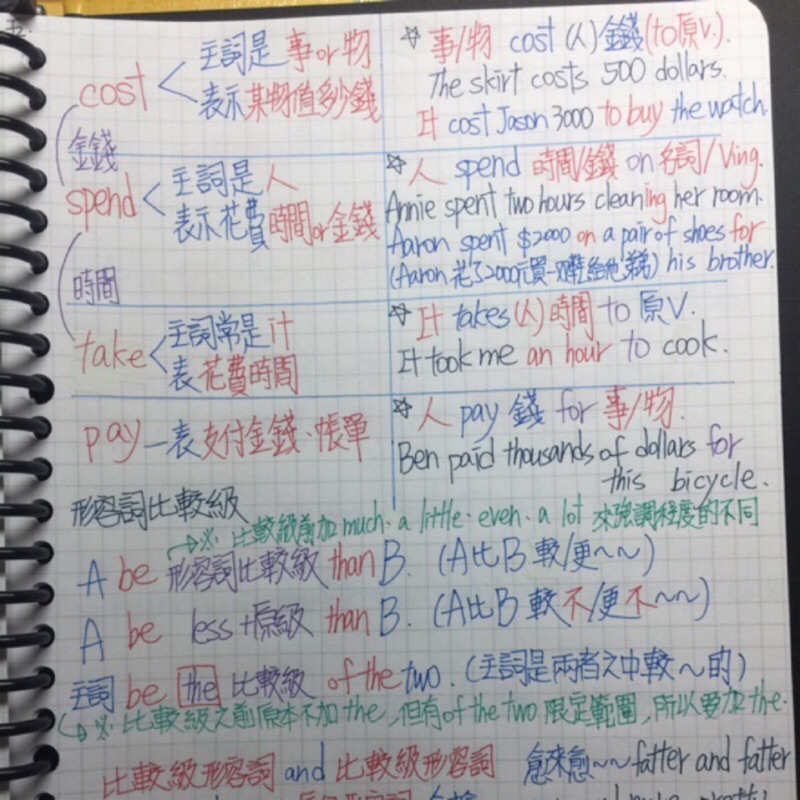 cost 主詞是事or物
表示某物值多少錢
☆ 事/物 cost (人) 金錢 (to原V.).
The skirt costs 500 dollars.
It cost Jason 3000 to buy the watch.
金錢
spend 主詞是人
表示花費時間or金錢
☆ 人 spend 時間/金錢 on 名詞/Ving.
Annie spent two hours cleaning her room.
Aaron spent $2000 on a pair of shoes for
(Aaron 花了2000元買一雙鞋給他弟弟) his brother.
時間
take 主詞常是it
表花費時間
☆ It takes (人) 時間 to 原V.
It took me an hour to cook.
pay — 表支付金錢、帳單
☆ 人 pay 錢 for 事/物.
Ben paid thousands of dollars for
this bicycle.
形容詞比較級
※ 比較級前加 much. a little. even. a lot 來強調程度的不同
A be 形容詞比較級 than B. (A比B 較/更～～)
A be less+原級 than B. (A比B 較不/更不～～)
主詞 be the 比較級 of the two. (主詞是兩者之中較～的)
※ 比較級之前原本不加 the, 但有of the two 限定範圍, 所以要加 the.
比較級形容詞 and 比較級形容詞 愈來愈～～ fatter and fatter